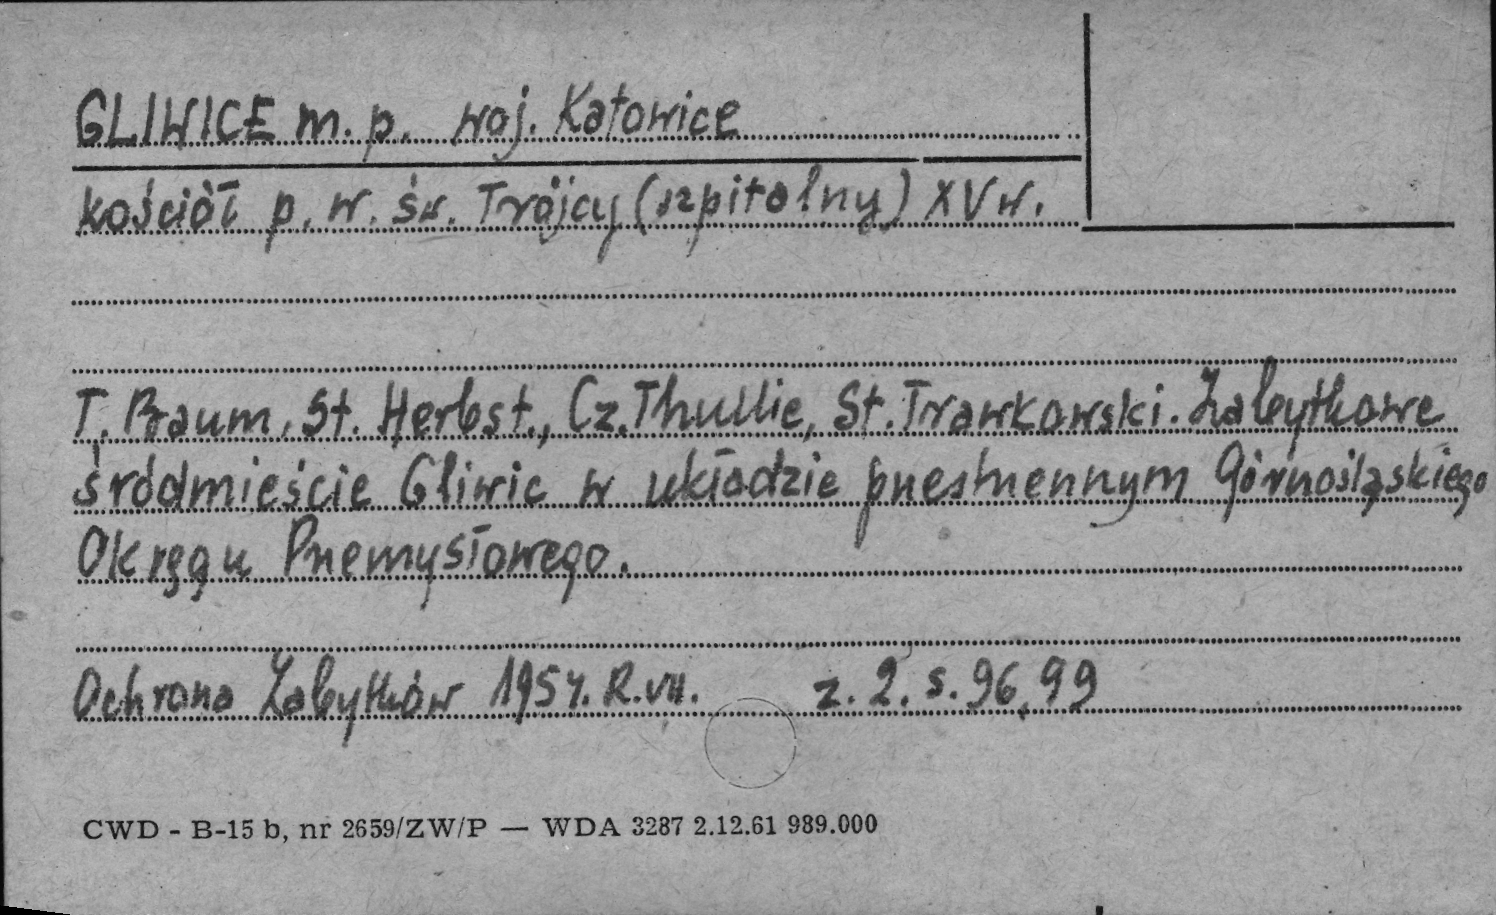 GLIWICE m. p. woj. Katowice
kościół p. w. św. Trójcy (szpitalny) XV w.
T. Baum, St. Herbst., Cz. Thullie, St. Trawkowski. Zabytkowe
śródmieście Gliwic w układzie przestrzennym Górnośląskiego
Okręgu Przemysłowego.
Ochrona Zabytków 1954. R. VII. z. 2. s. 96, 99
CWD - B-15 b, nr 2659/ZW/P — WDA 3287 2.12.61 989.000